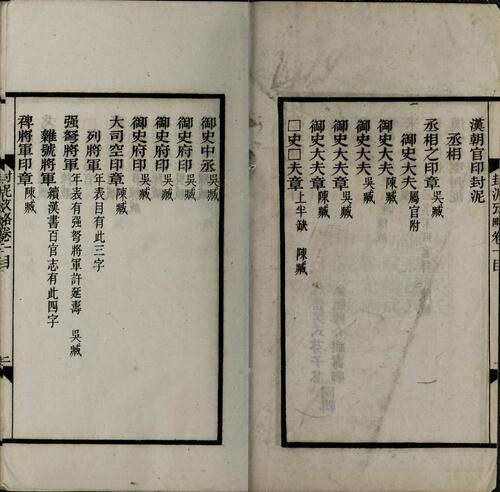 封泥攷略卷一目
漢朝官印封泥
丞相
丞相之印章 吳臧
御史大夫 屬官附
御史大夫 陳臧
御史大夫 吳臧
御史大夫章 吳臧
御史大夫章 陳臧
□史□夫章 上半缺 陳臧
御史中丞 吳臧
御史府印 吳臧
御史府印 吳臧
御史府印 陳臧
大司空印章 陳臧
列將軍 年表目有此三字
强弩將軍 年表有强弩將軍許延壽 吳臧
雜號將軍 續漢書百官志有此四字
裨將軍印章 陳臧
封泥攷略卷一目
二